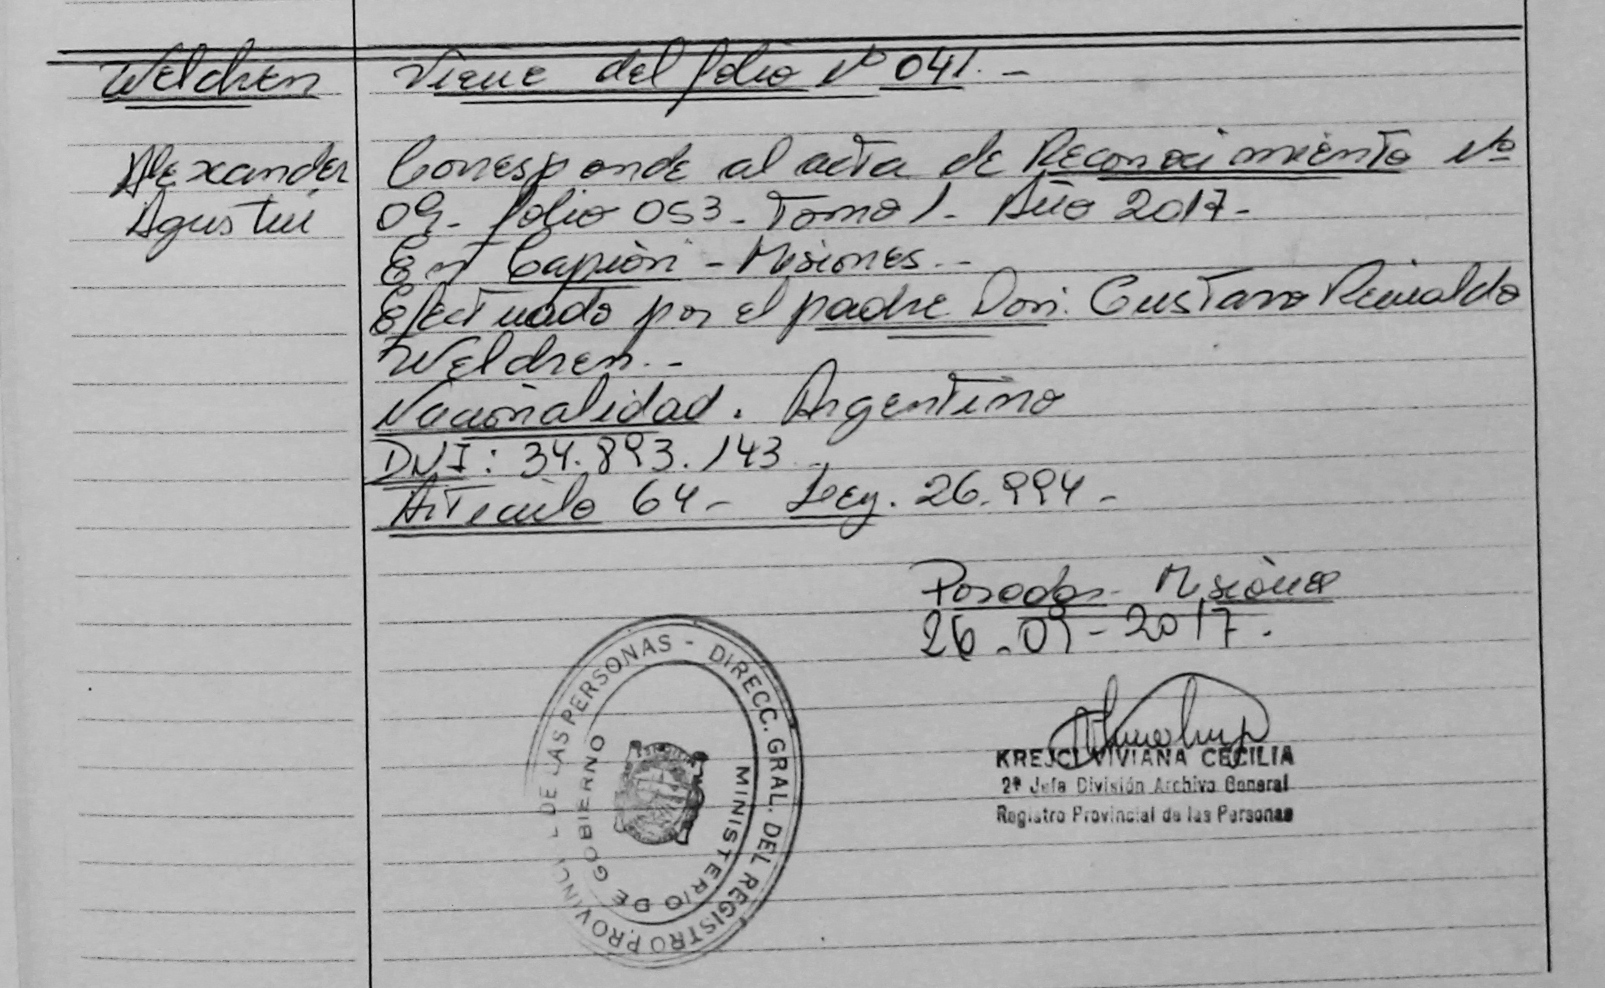 Welchen
Viene del folio Nº 041. -
Alexander
Agustin
Corresponde al acta de Reconocimiento Nº
09- folio 053- Tomo 1- Año 2017-
En Capiòn - Misiones.-
Efectuado por el padre Don: Gustavo Reinaldo
Welchen.-
Nacionalidad. Argentino
DNI: 34.893.143
Articulo 64- Ley. 26.994-
Posadas- Misiones
26-09-2017.
KREJCI VIVIANA CECILIA
2ª Jefa División Archivo General
Registro Provincial de las Personas
DIRECC. GRAL. DEL REGISTRO PROVINCIAL DE LAS PERSONAS -
MINISTERIO DE GOBIERNO